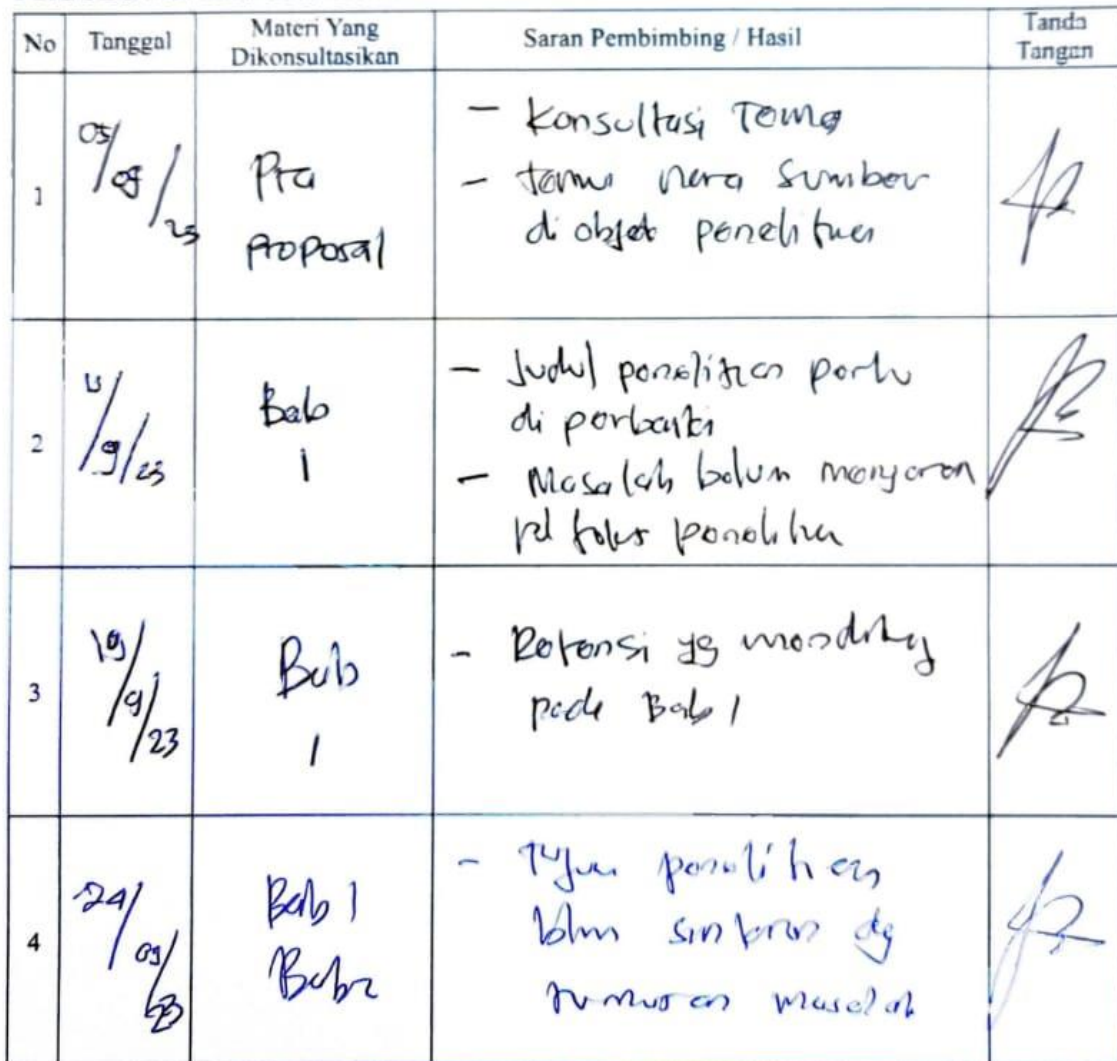 No Tanggal Materi Yang Dikonsultasikan Saran Pembimbing / Hasil Tanda Tangan
1
Pra
proposal
- Konsultasi Tema
- temui nara sumber
di objek penelitian
2
/9/23
Bab
1
- Judul penelitian perlu
di perbaiki
- Masalah belum
fokus penelitian
3
19/9/23
Bab
1
- yg
pada Bab 1
4
24/09/23
Bab 1
Bab 2
- Tujuan penelitian
blm sinkron dg
rumusan masalah